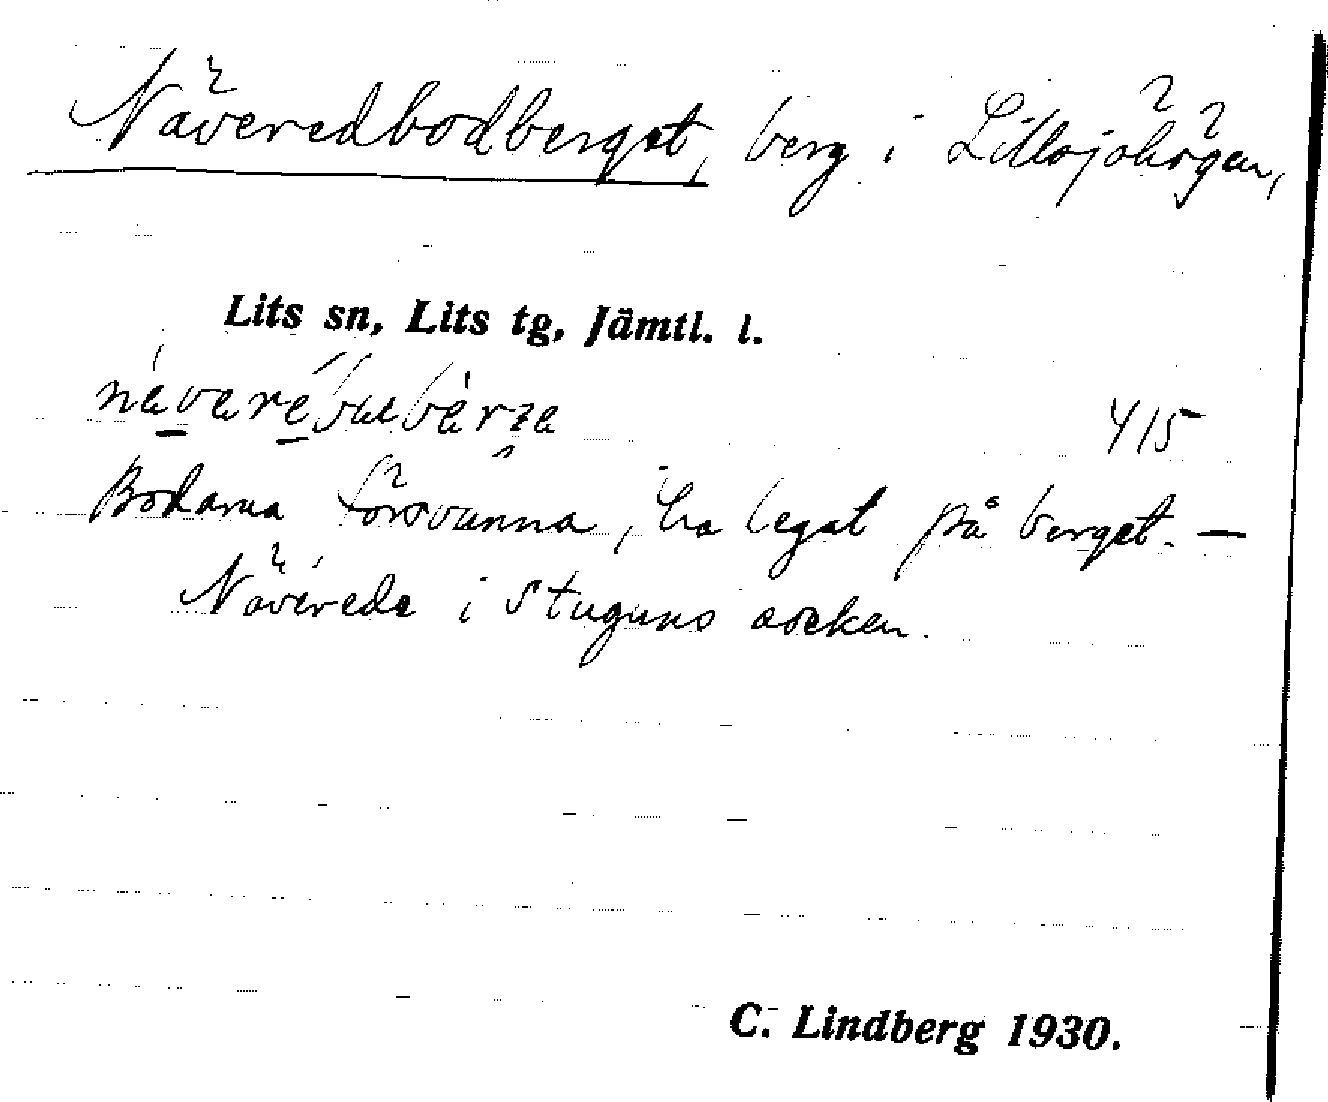 Näveredbodberget, berg i Lillsjöhögen,
Lits sn, Lits tg, Jämtl. l.
415
Bodarna försvunna, ha legat på berget. —
Näverede i Stuguns socken.
C. Lindberg 1930.